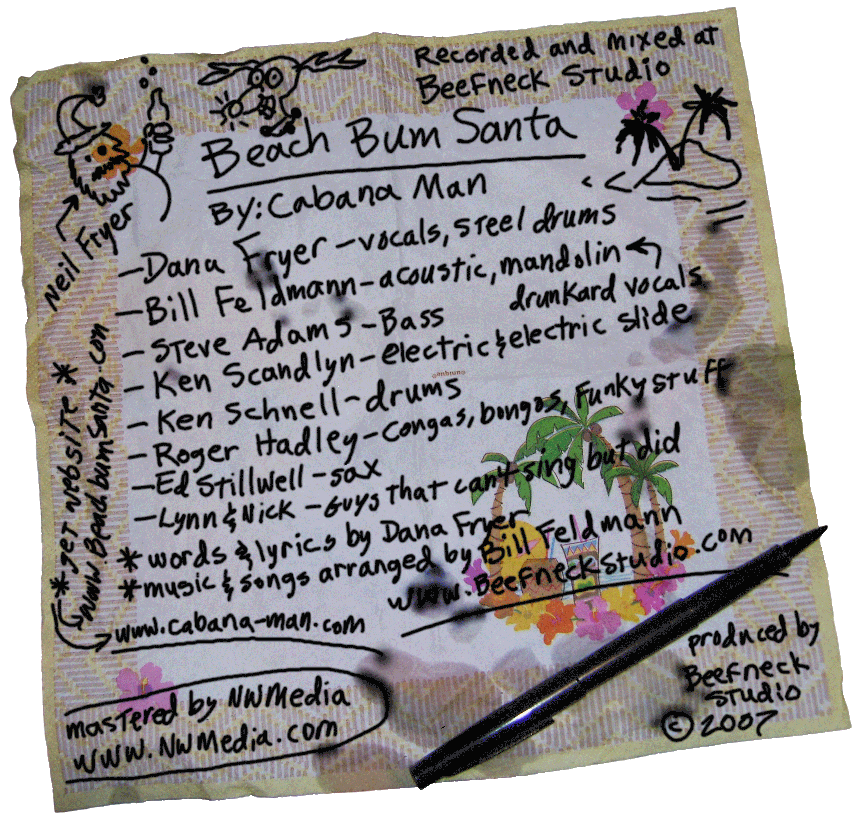 Recorded and mixed at
BeeFneck Studio
Beach Bum Santa
By: Cabana Man
Neil Fryer
-Dana Fryer -vocals, steel drums
-Bill Feldmann-acoustic, mandolin
drunkard vocals
-Steve Adams -Bass
-Ken Scandlyn-electric & electric slide
-Ken Schnell-drums
-Roger Hadley-congas, bongos, Funky stuff
-Ed Stillwell -sax
-Lynn & Nick -Guys that can't sing but did
* words & lyrics by Dana Fryer
* music & songs arranged by Bill Feldmann
www.BeeFneckStudio.com
* Jet website *
www.BeachbumSanta.com
www.cabana-man.com
mastered by NWMedia
www.NWMedia.com
produced by
BeeFneck
Studio
© 2007